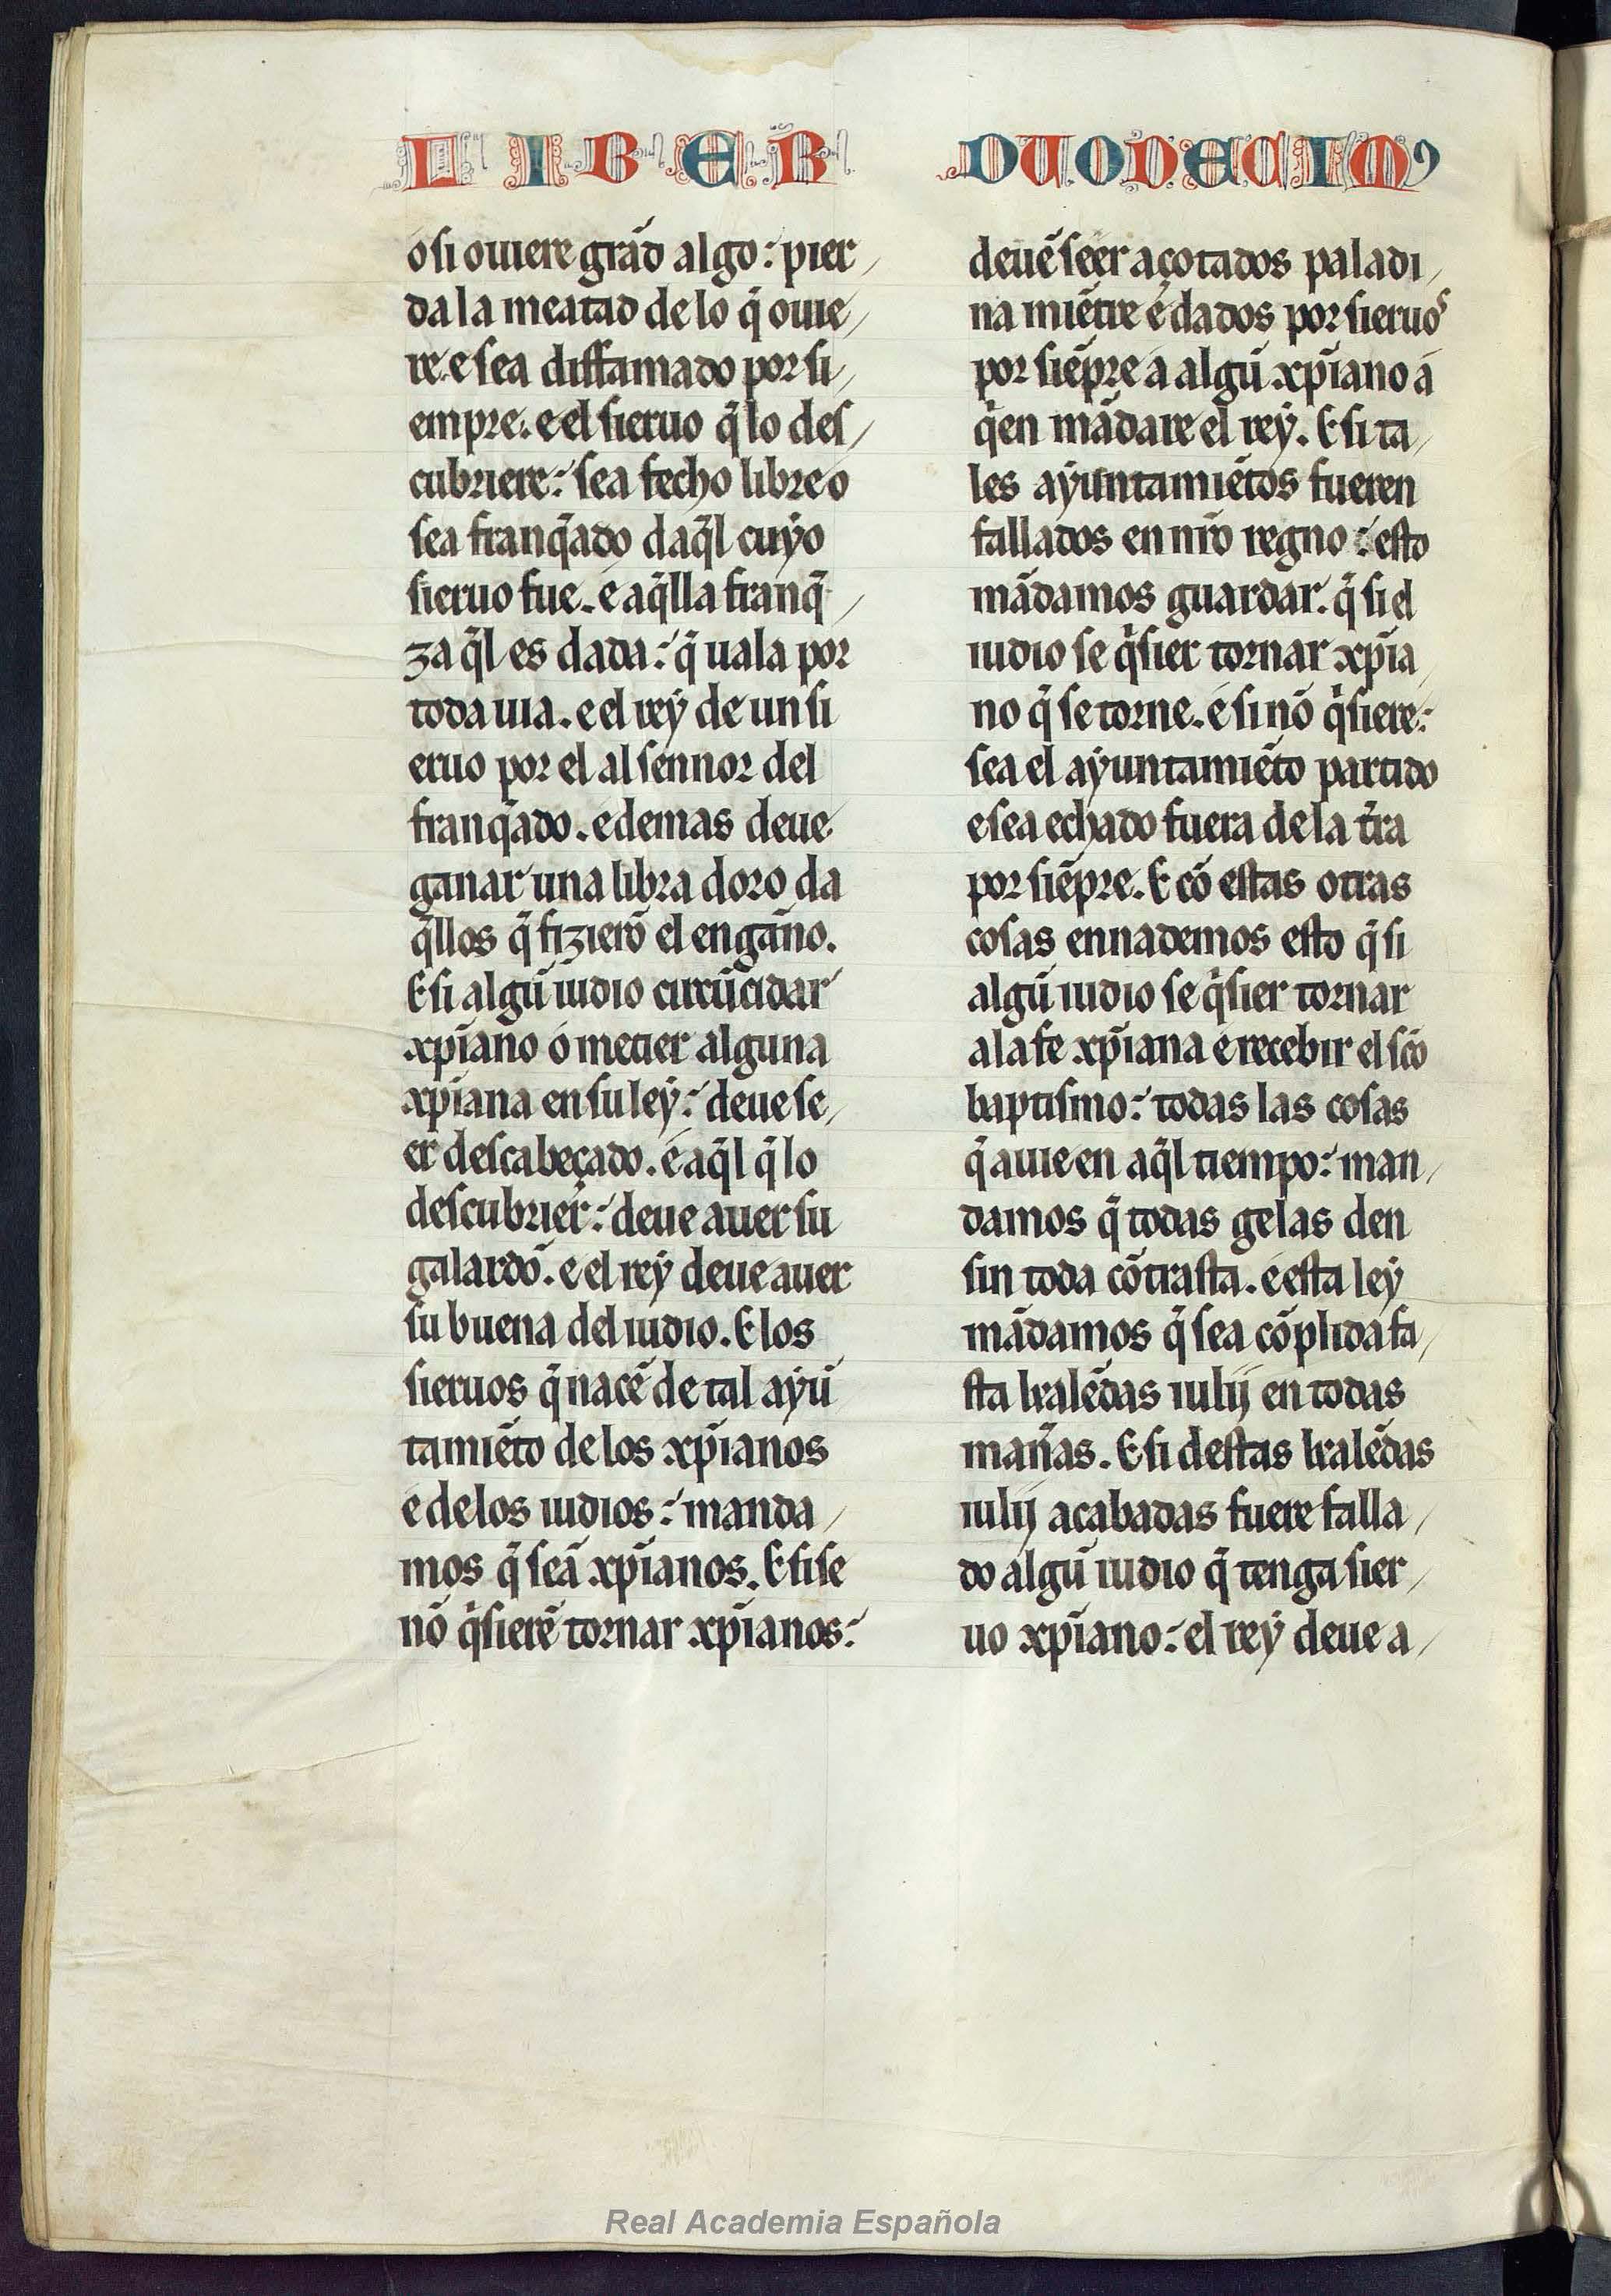 LIBER DUODECIMꝰ
o si ouiere grãd algo: pier/
da la meatad de lo q̃ ouie/
re. e sea diffamado por si/
empre. e el sieruo q̃ lo des/
cubriere: sea fecho libre o
sea franq̃ado daq̃l cuyo
sieruo fue. e aq̃lla franq̃/
za q̃l es dada: q̃ uala por
toda uia. e el rey de un si
eruo por el al sennor del
franq̃ado. e demas deue
ganar una libra doro da
q̃llos q̃ fizierõ el engãno.
E si algũ iudio
xp̃iano o metier alguna
xp̃iana en su ley: deue se/
er descabeçado. e aq̃l q̃ lo
descubrier̃: deue auer su
galardõ. e el rey deue auer
su buena del iudio. E los
sieruos q̃ nacẽ de tal ayũ
tamiẽto de los xp̃ianos
e de los iudios: manda/
mos q̃ seã xp̃ianos. E si se
nõ q̃sierẽ tornar xp̃ianos:
deuẽ seer açotados paladi/
na miẽtre e dados por sieruos
por siẽpre a algũ xp̃iano a
q̃en mãdare el rey. E si ta/
les ayuntamiẽtos fueren
fallados en nr̃o regno: esto
mãdamos guardar. q̃ si el
iudio se q̃sier tornar xp̃ia/
no q̃ se torne. e si nõ q̃siere:
sea el ayuntamiẽto partido
e sea echado fuera de la tr̃ra
por siẽpre. E cõ estas otras
cosas ennademos esto q̃ si
algũ iudio se q̃sier tornar
a la fe xp̃iana e recebir el sc̃o
baptismo: todas las cosas
q̃ auie en aq̃l tiempo: man/
damos q̃ todas ge las den
sin toda cõtrasta. e esta ley
mãdamos q̃ sea cõplida fa/
sta kalẽdas iulij en todas
man̄as. E si destas kalẽdas
iulij acabadas fuere falla/
do algũ iudio q̃ tenga sier/
uo xp̃iano: el rey deue a/
Real Academia Española